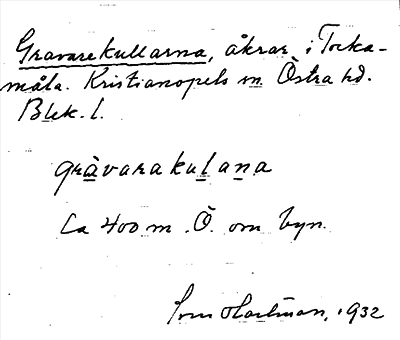 Gravarekullarna, åkrar i Torka-
måla. Kristianopels sn Östra hd.
Blek. l.
gràvarakulana
Ca 400 m. Ö. om byn.
Hartman, 1932